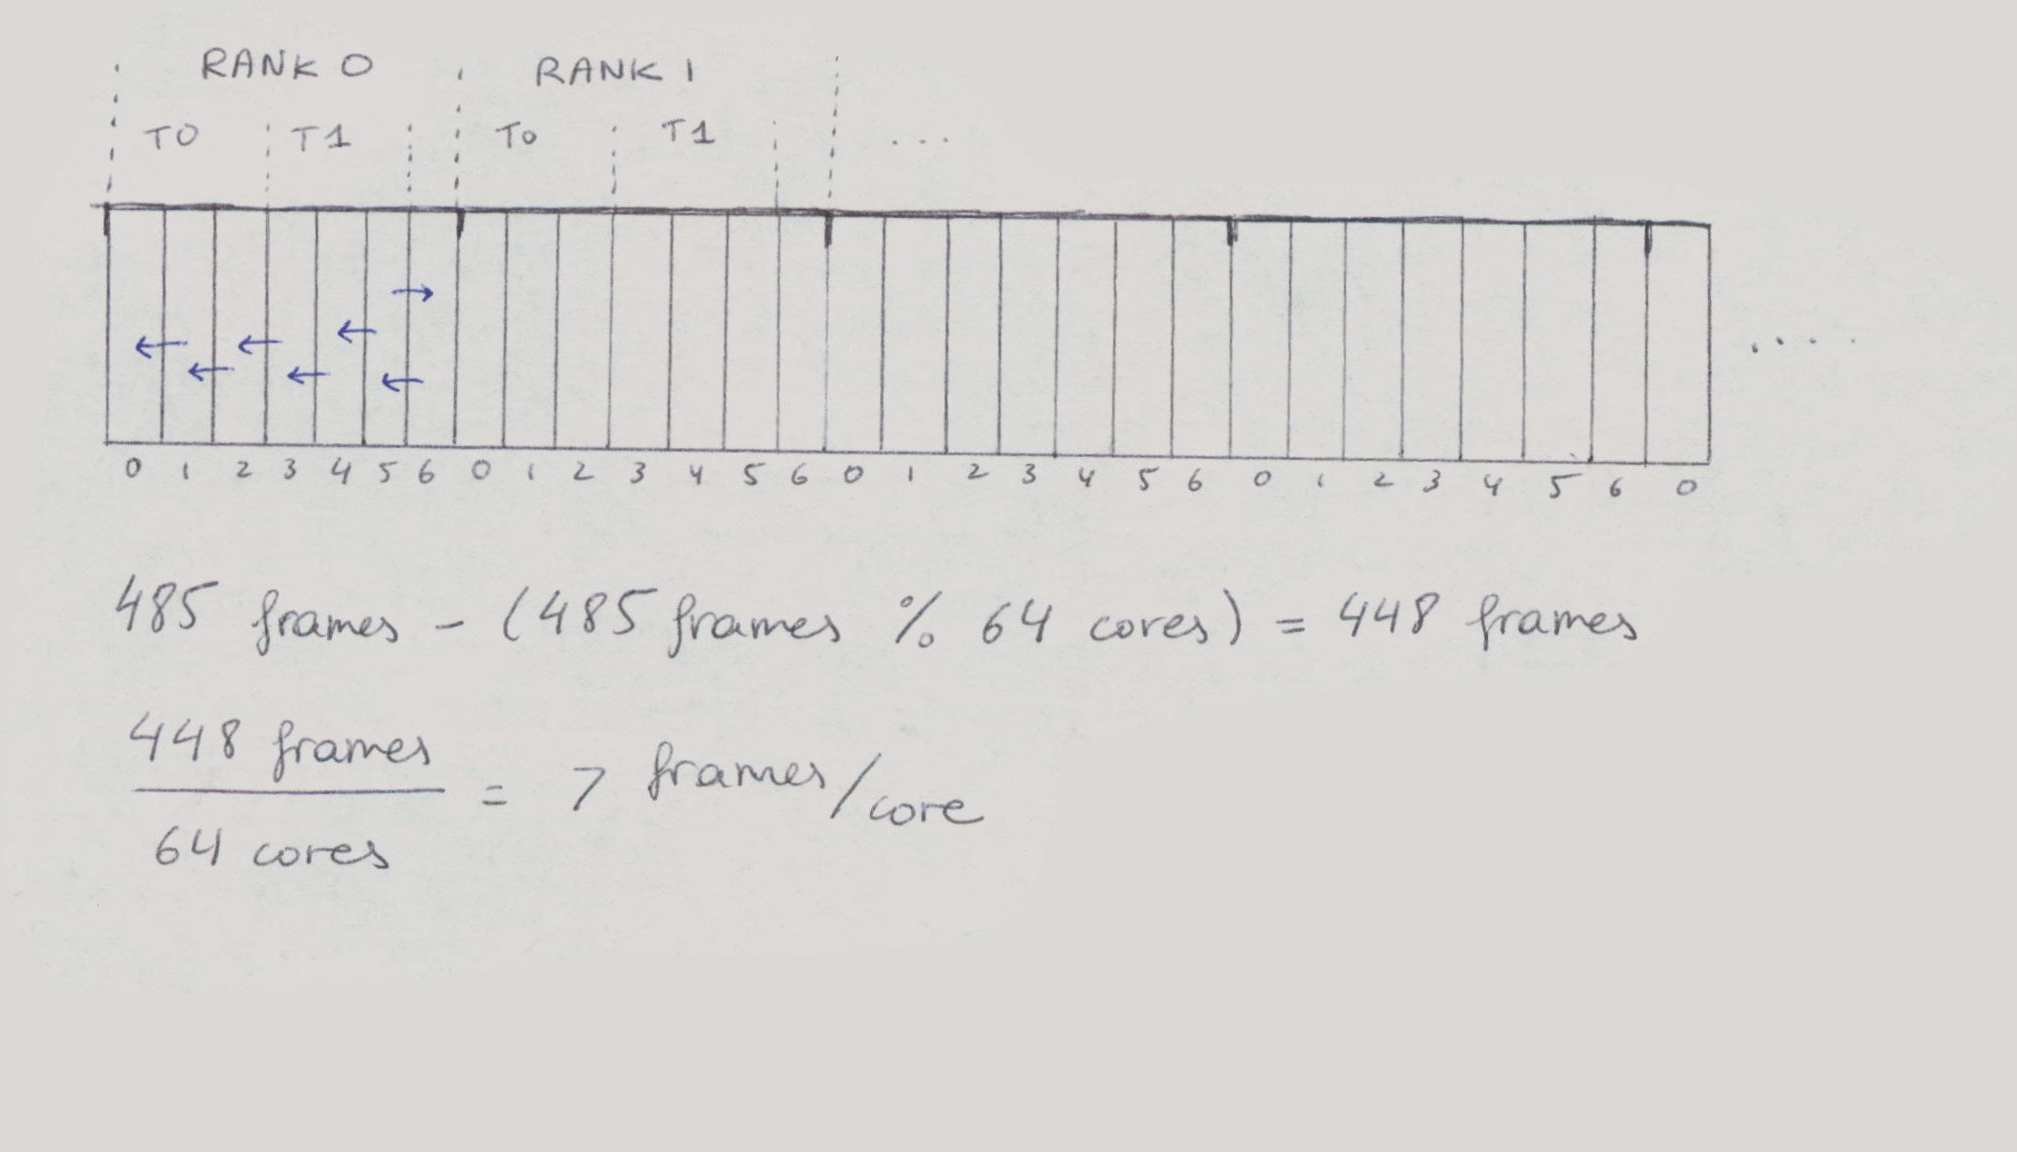 RANK 0 RANK 1
T0 T1 T0 T1 ...
....
0 1 2 3 4 5 6 0 1 2 3 4 5 6 0 1 2 3 4 5 6 0 1 2 3 4 5 6 0
485 frames - (485 frames % 64 cores) = 448 frames
448 frames
= 7 frames/core
64 cores